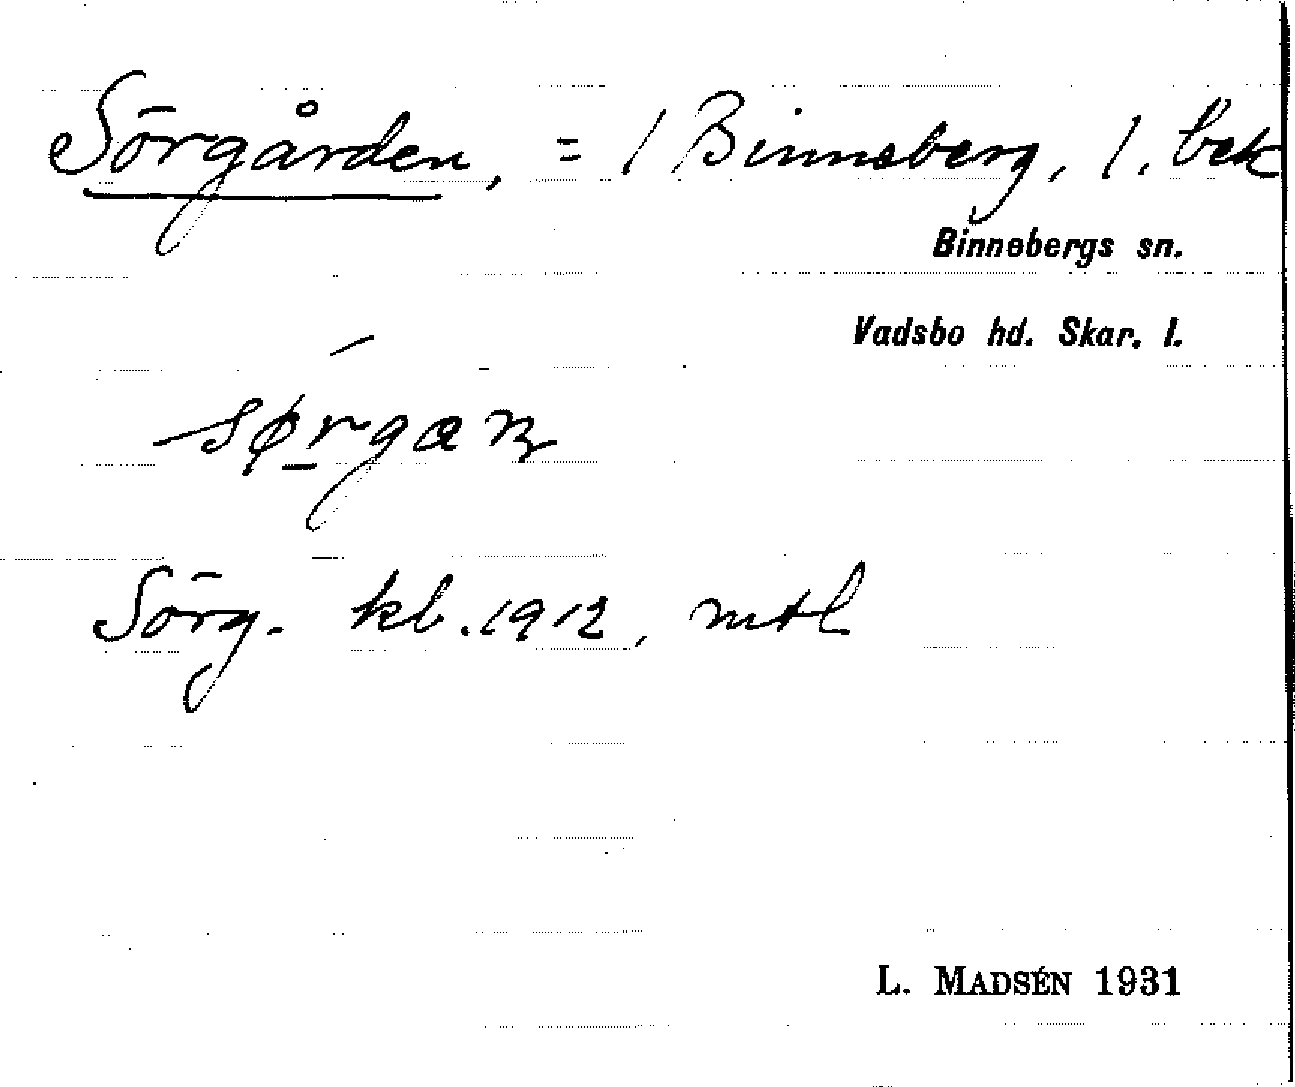 Sörgården, = 1 Binneberg, 1. bek
Binnebergs sn.
Vadsbo hd. Skar. l.
Sörg. kb. 1912, mtl
L. MADSÉN 1931